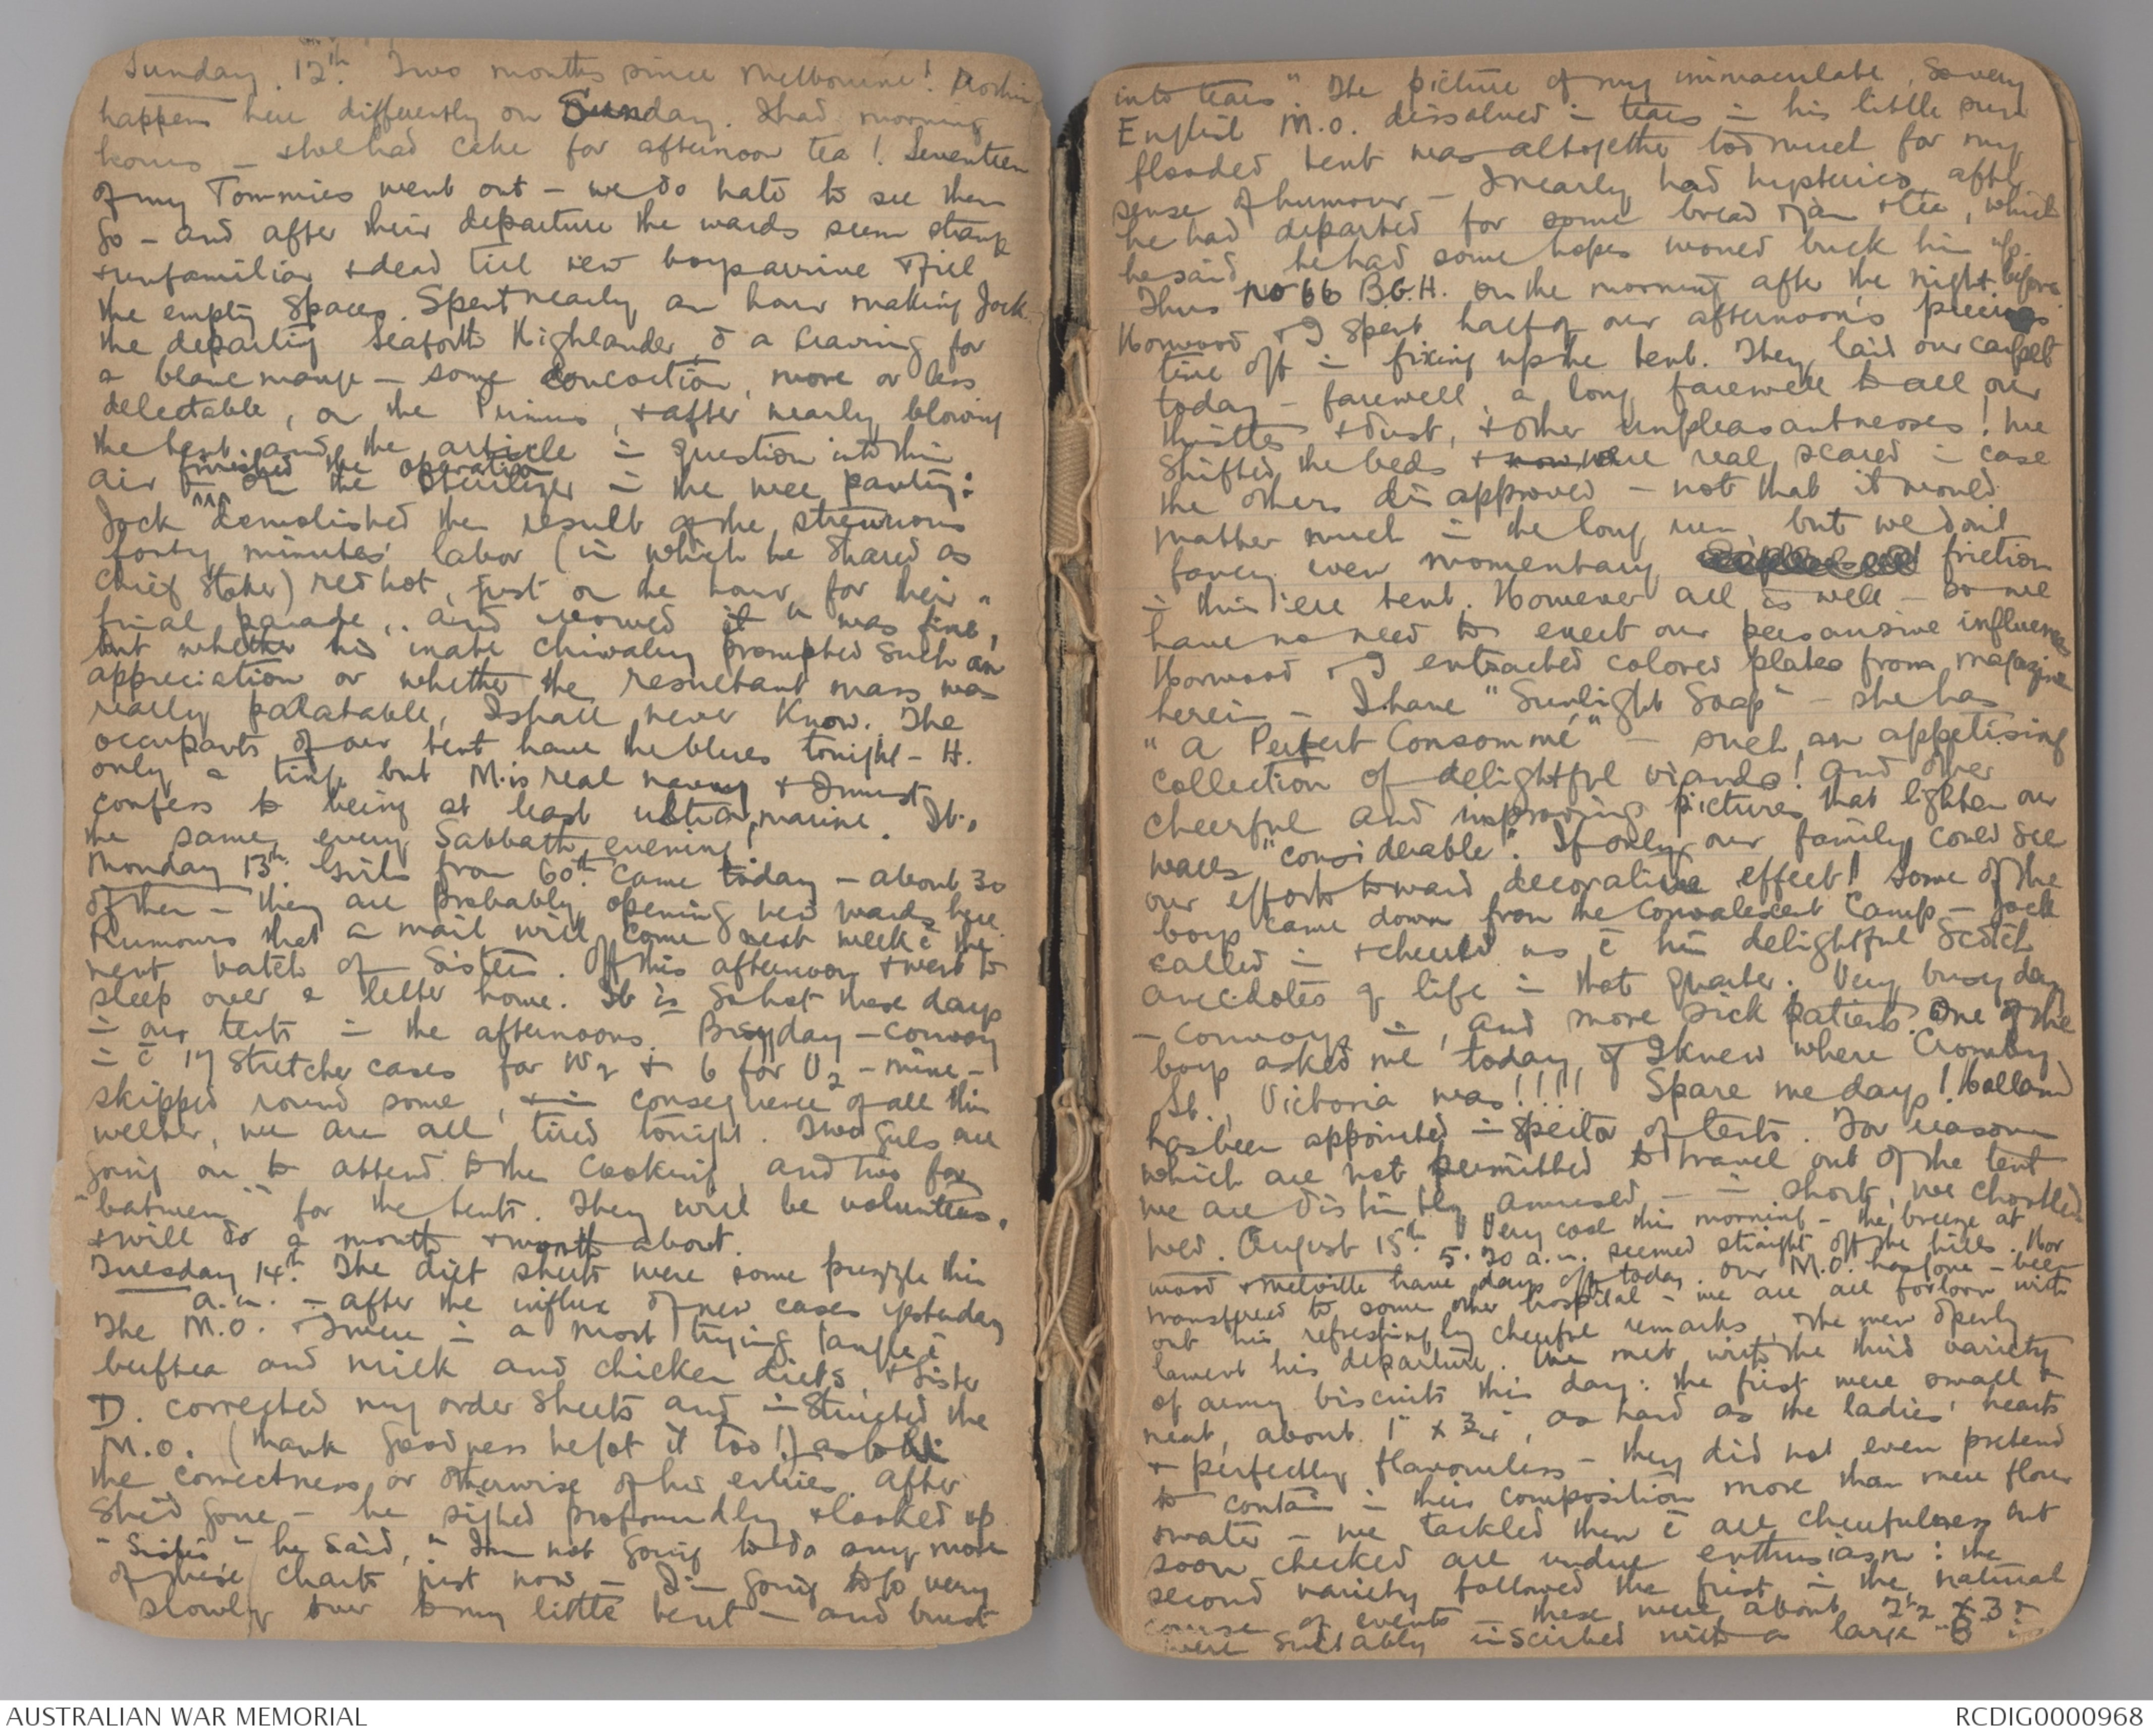 Sunday 12th. Two months since Melbourne! Nothing
happens here differently on Sunday. I had morning
hours – & we had cake for afternoon tea! Seventeen
of my Tommies went out – we do hate to see them
go – and after their departure the wards seem strange
& unfamiliar & dead till new boys arrive & fill
the empty spaces. Spent nearly an hour making Jock
the departing Seaforth Highlander, c̄ a craving for
a blanc mange – some concoction, more or less
delectable, on the Primus, & after nearly blowing
the tent and the article in question into thin
air finished the operation on the sterilizer in the wee pantry:
Jock demolished the result of the strenuous
forty minutes' labor (in which he shared as
chief stoker) red hot, just on the hour for their
final parade, and vowed it "was fine",
but whether his inate chivalry prompted such an
appreciation or whether the resultant mass was
really palatable, I shall never know. The
occupants of our tent have the blues tonight – H.
only a tinge but M. is real navy & I must
confess to being at least ultramarine. It's
the same every Sabbath evening!
Monday 13th. Girls from 60th came today – about 30
of them – they are probably opening new wards here.
Rumours that a mail will come next week c̄ the
next batch of Sisters. Off this afternoon & went to
sleep over a letter home. It is so hot these days
in our tents in the afternoons. Busy day – convoy
in c̄ 17 stretcher cases for W2 & 6 for U2 – mine –
skipped round some, & in consequence of all this
welter, we are all tired tonight. Two girls are
going on to attend to the cooking, and two for
"batmen" for the tents. They will be volunteers,
& will do a month & month about.
Tuesday 14th. The diet sheets were some puzzle this
a.m. – after the influx of new cases yesterday
The M.O. & I were in a most trying tangle c̄
beeftea and milk and chicken diets, & Sister
D. corrected my order sheets and instructed the
M.O. (thank goodness he got it too!) as to
the correctness or otherwise of his entries. After
she'd gone – he sighed profoundly & looked up
"Sister" he said, "I'm not going to do any more
of these charts just now – I'm going to go very
slowly over to my little tent – and burst
into tears". The picture of my immaculate, so very
English M.O. dissolved in tears in his little
flooded tent was altogether too much for my
sense of humour – I nearly had hysterics after
he had departed for some bread & jam & tea, which
he said he had some hopes would buck him up.
Thus No 66 B.G.H. on the morning after the night before
Horwood & I spent half of our afternoon's precious
time off in fixing up the tent. They laid our carpet
today – farewell, a long farewell to all our
thistles & dust, & other unpleasantnesses! We
shifted the beds & now we're real scared in case
the others disapproved – not that it would
matter much in the long run but we don't
fancy even momentary friction
in this 'ere tent. However all is well – so we
have no need to exert our persuasive influence
Horwood & I extracted colored plates from magazines
herein – I have "Sunlight Soap" – she has
"A Perfect Consommé" – such an appetising
collection of delightful viands! And other
cheerful and improving pictures that lighten our
walls "considerable". If only our family could see
our effort toward decorative effect! Some of the
boys came down from the Convalescent Camp – Jock
called in & cheered us c̄ his delightful Scotch
anecdotes of life in that quarter. Very busy day
– convoys in, and more sick patients. One of the
boys asked me today if I knew where Cromby
St., Victoria was!!!! Spare me days! Holland
has been appointed inspector of tents. For reasons
which are not permitted to travel out of the tent
we are distinctly amused – in short, we chortled
Wed. August 15th. Very cool this morning – the breeze at
5.30 a.m. seemed straight off the hills. Hor
wood & Melville have days off today. Our M.O. has gone – been
transferred to some other hospital – we are all forlorn with
out his refreshingly cheerful remarks, & the men openly
lament his departure. We met with the third variety
of army biscuits this day: the first were small &
neat, about 1" x 3/4", as hard as the ladies' hearts
& perfectly flavourless – they did not even pretend
to contain in their composition more than mere flour
& water – we tackled them c̄ all cheerfulness but
soon checked all undue enthusiasm: the
second variety followed the first in the natural
course of events – these were about 2½ x 3 &
were suitably inscribed with a large "B" in
AUSTRALIAN WAR MEMORIAL
RCDIG0000968